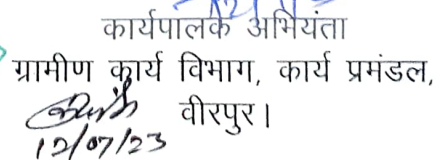 कार्यपालक अभियंता
ग्रामीण कार्य विभाग, कार्य प्रमंडल,
वीरपुर।
12/07/23